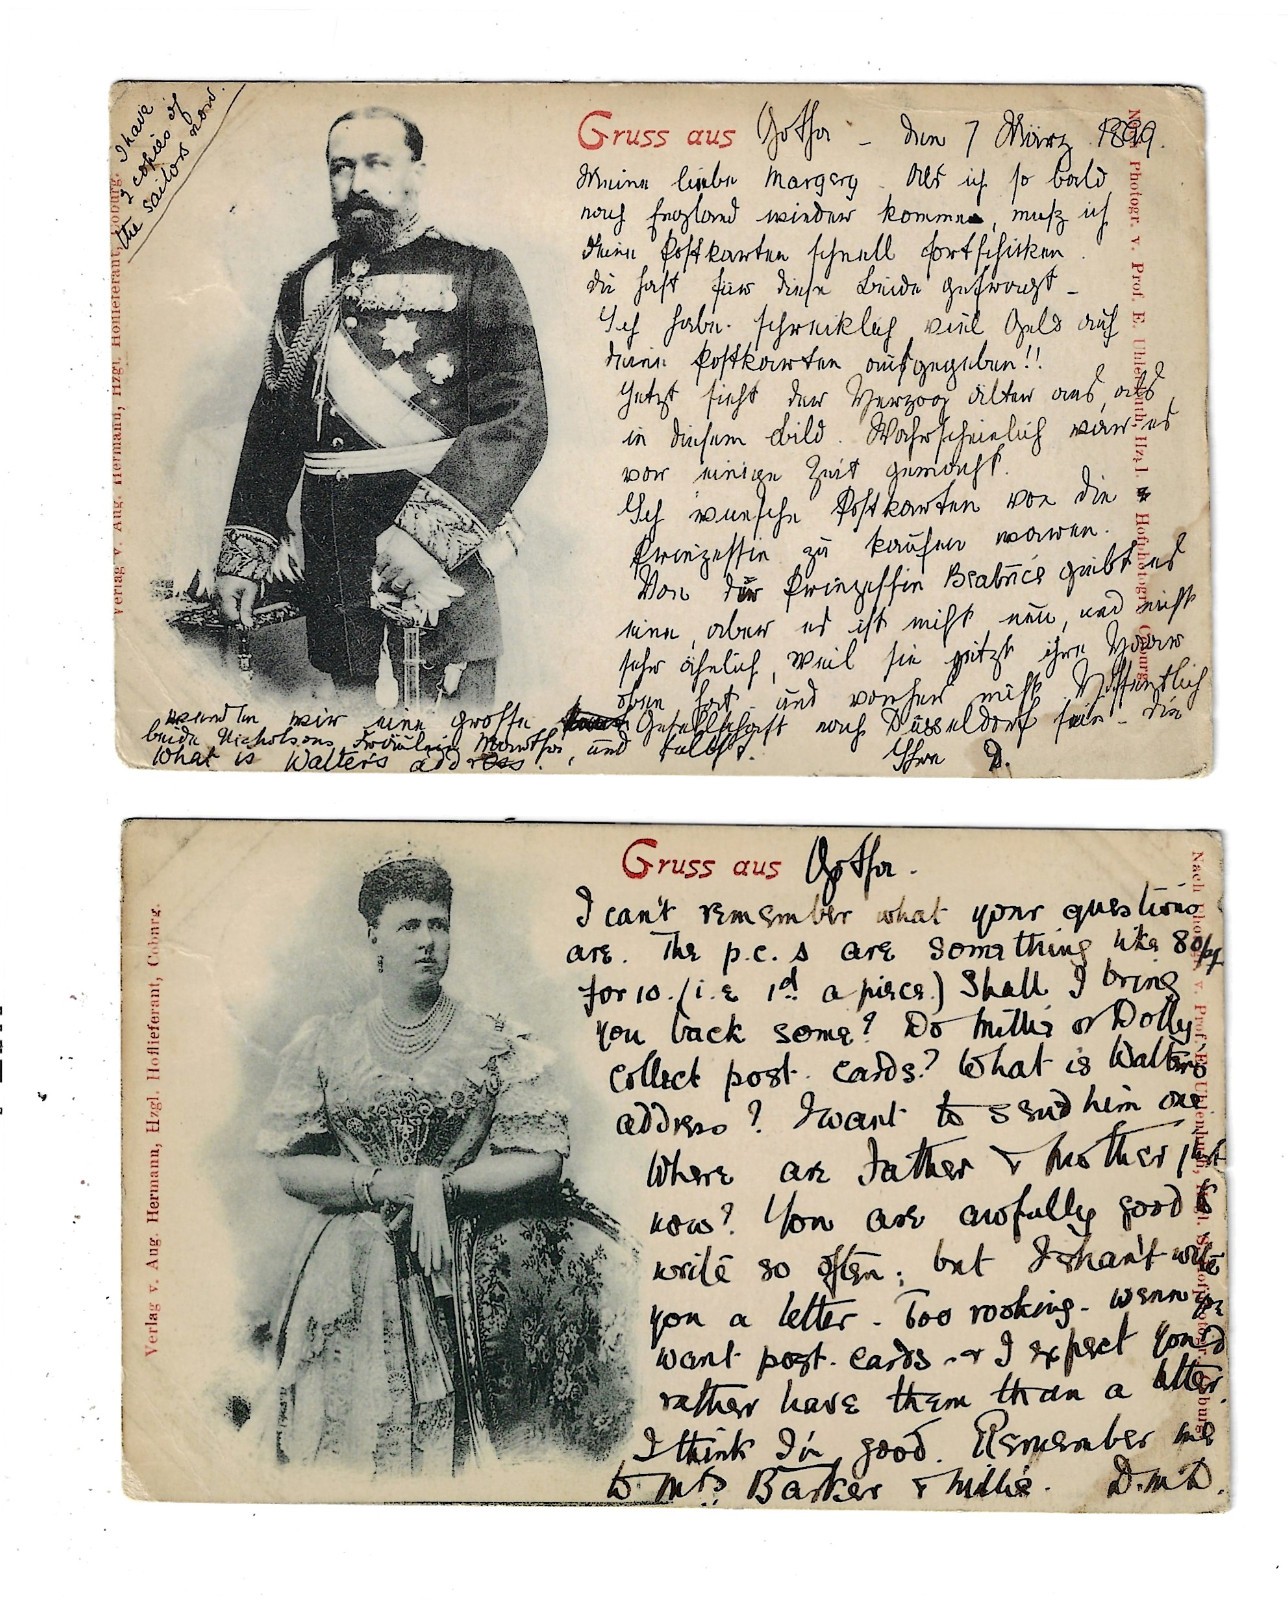 I have
2 copies of
the sailors now.
Verlag v. Aug. Hermann, Hzgl. Hoflieferant, Coburg.
Gruss aus Gotha - den 7 März 1899.
Meine liebe Margery. Als ich so bald
nach England wieder komme, muß ich
deine Postkarten schnell fortschicken.
du hast für diese beide gefragt -
Ich habe schrecklich viel Geld auf
deine Postkarten ausgegeben!!
Jetzt sieht der Herzog älter aus, als
in diesem Bild. Wahrscheinlich war es
vor einige Zeit gemacht.
Ich wünsche Postkarten von die
Prinzessin zu kaufen waren.
Von der Prinzessin Beatrice giebt es
eine, aber es ist nicht neu, und nicht
sehr ähnlich, weil sie jetzt ihre Haar
oben hat und vorher nicht. Hoffentlich
werden wir eine grosse Gesellschaft nach Düsseldorf sein - die
beide Nicholsons, Fräulein Martha, und selbst.
What is Walter's address? Ihre D.
Nach Photogr. v. Prof. E. Uhlenhuth, Hzgl. S. Hofphotogr. Coburg.
Gruss aus Gotha.
I can't remember what your questions
are. The p.c.s are something like 80pf
for 10. (i.e 1d. a piece.) Shall I bring
you back some? Do Millie or Dolly
collect post. cards? What is Walter's
address? I want to send him one
Where are Father & Mother just
now? You are awfully good to
write so often; but I shan't write
you a letter - Too rooking - wenn you
want post. cards - & I expect you'd
rather have them than a letter.
I think I'm good. Remember me
to Mrs. Barker & Millie. D.M.D.
Verlag v. Aug. Hermann, Hzgl. Hoflieferant, Coburg.
Nach Photogr. v. Prof. E. Uhlenhuth, Hzgl. S. Hofphotogr. Coburg.